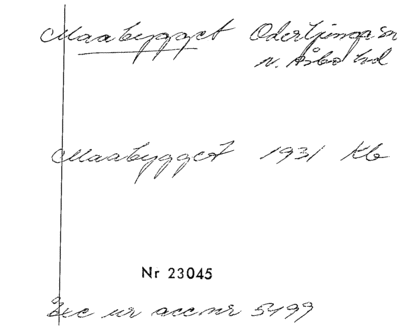 Maabygget Oderljunga sn
N. Åsbo hd
Maabygget 1931 Kb
Nr 23045
Exc ur acc nr 5499